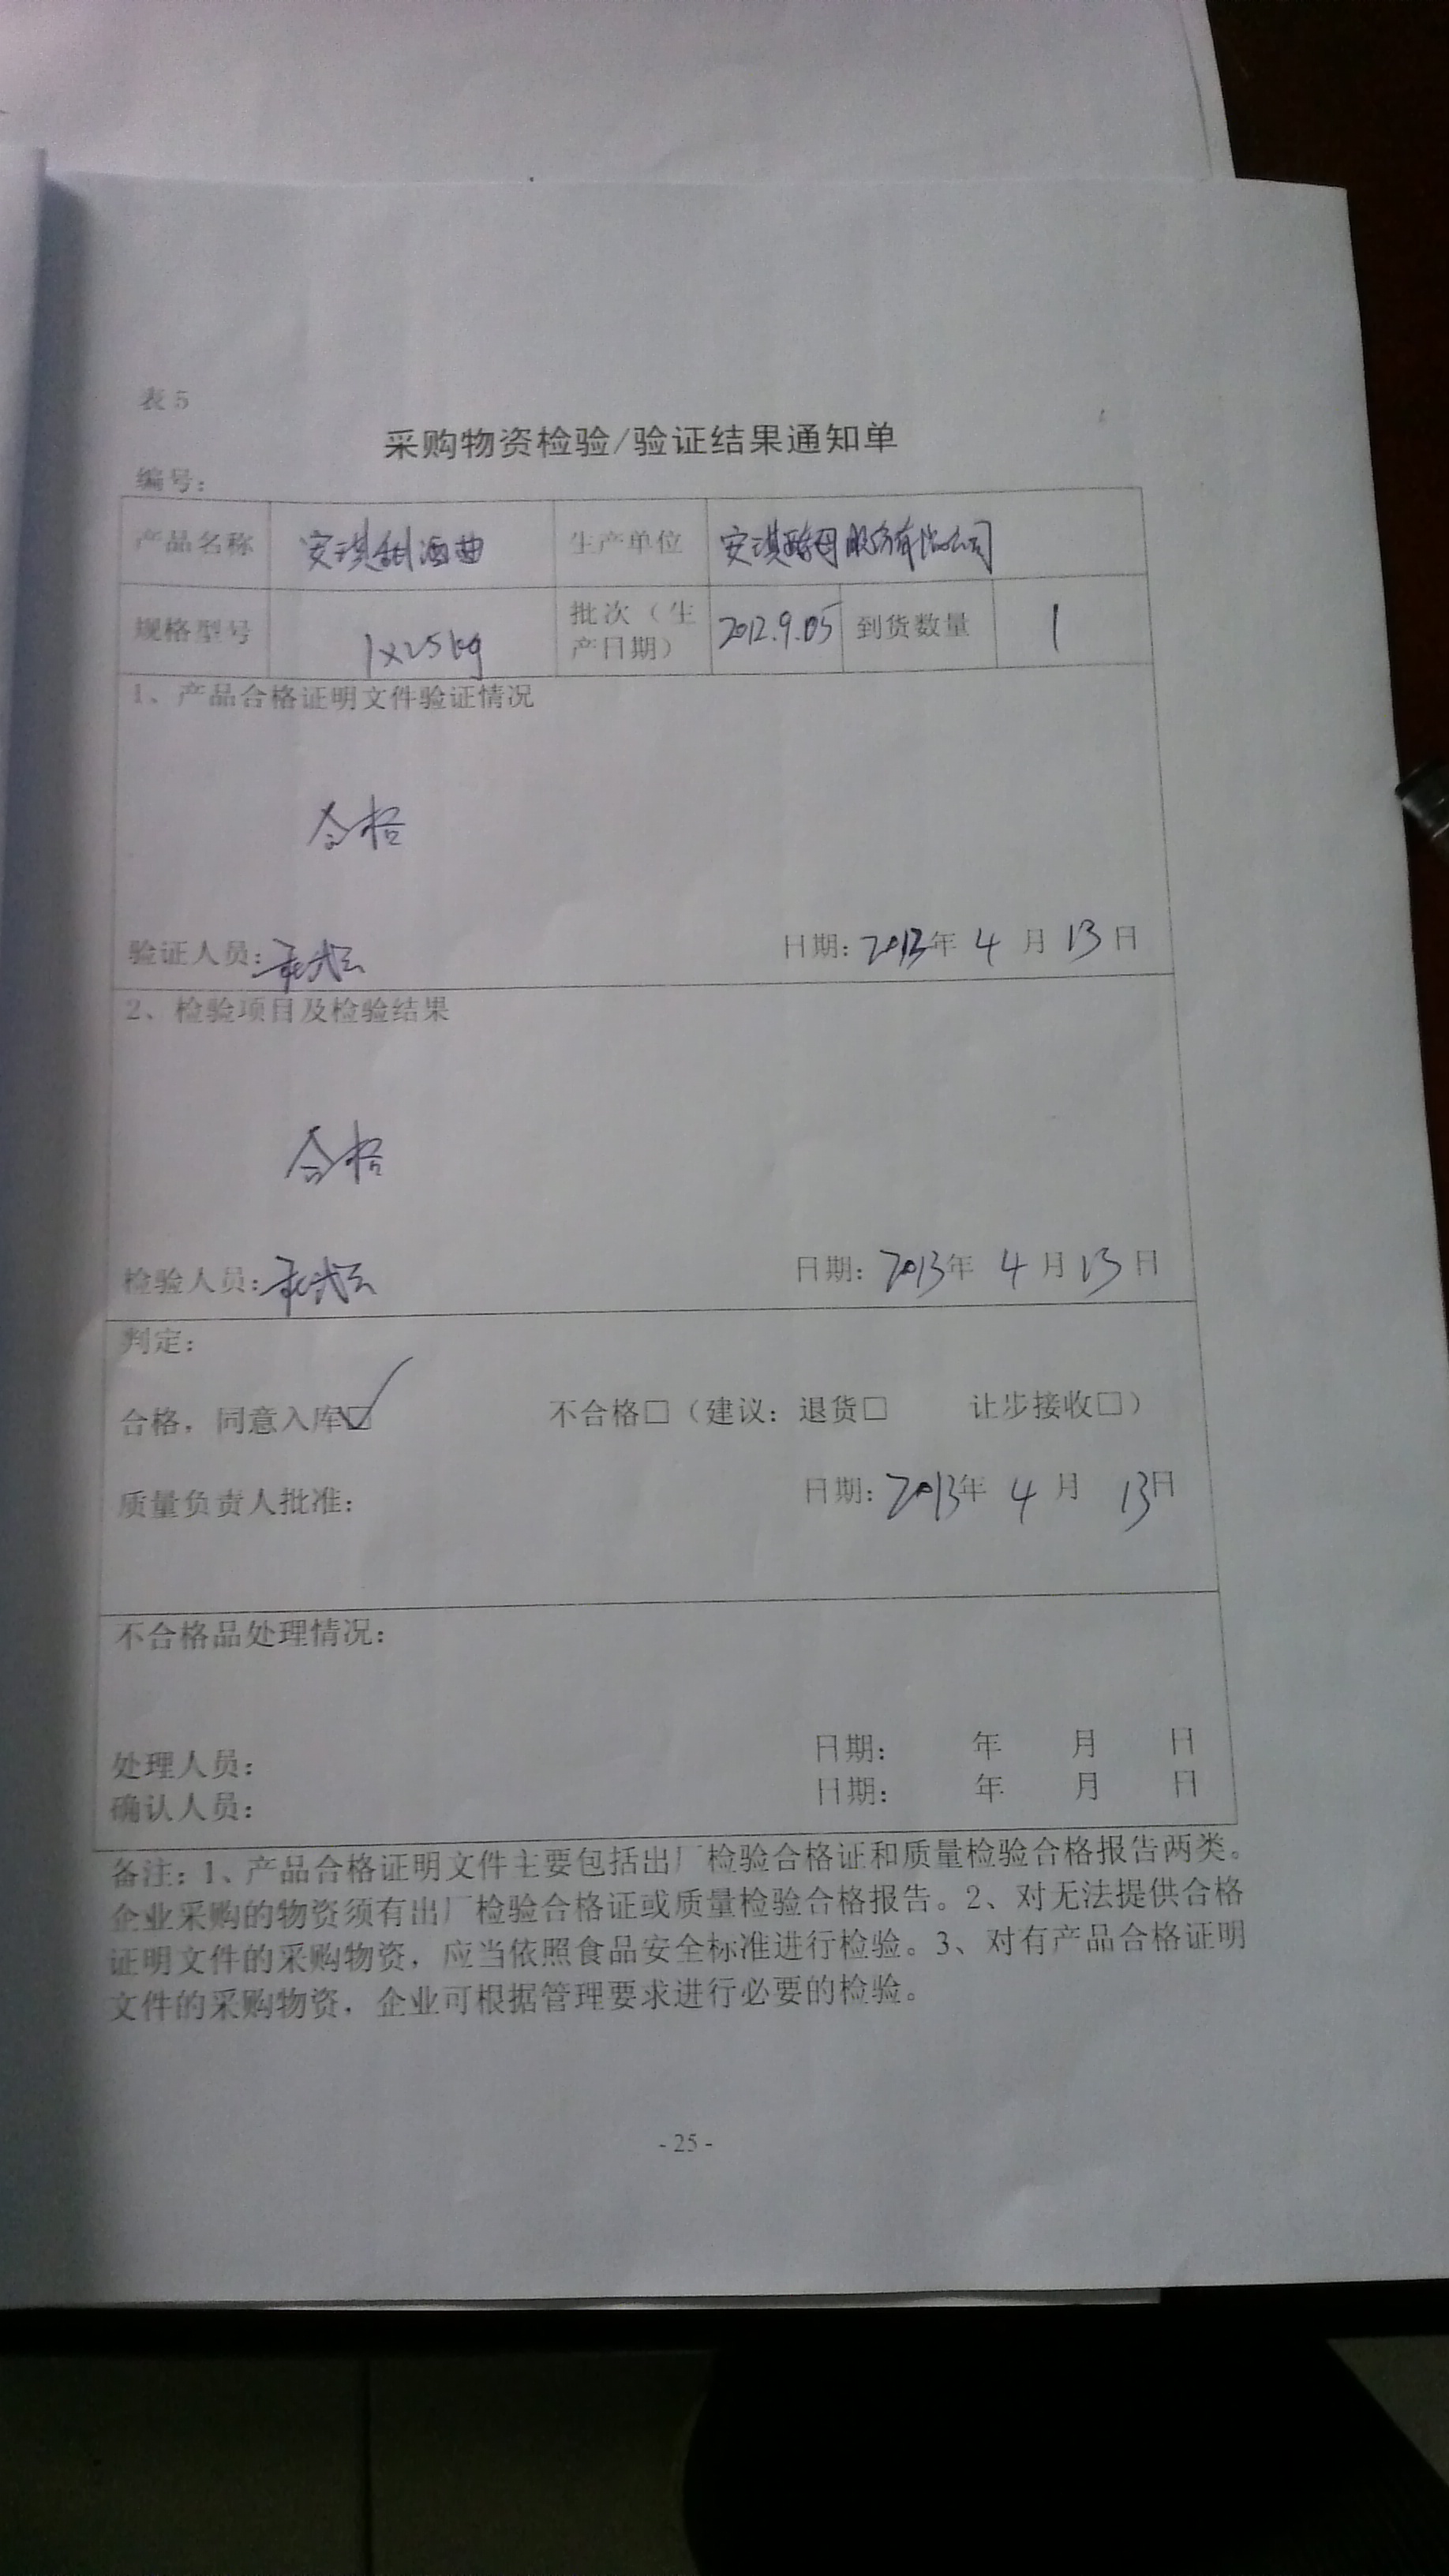 表 5
采购物资检验/验证结果通知单
编号：
产品名称 安琪甜酒曲 生产单位 安琪酵母股份有限公司
规格型号 1×25kg 批次（生产日期） 2012.9.05 到货数量 1
1、产品合格证明文件验证情况
合格
验证人员： 日期：2013年 4 月 13 日
2、检验项目及检验结果
合格
检验人员： 日期：2013年 4 月 13 日
判定：
合格，同意入库☑ 不合格□（建议：退货□ 让步接收□）
质量负责人批准： 日期：2013年 4 月 13日
不合格品处理情况：
处理人员： 日期： 年 月 日
确认人员： 日期： 年 月 日
备注：1、产品合格证明文件主要包括出厂检验合格证和质量检验合格报告两类。
企业采购的物资须有出厂检验合格证或质量检验合格报告。2、对无法提供合格
证明文件的采购物资，应当依照食品安全标准进行检验。3、对有产品合格证明
文件的采购物资，企业可根据管理要求进行必要的检验。
- 25 -